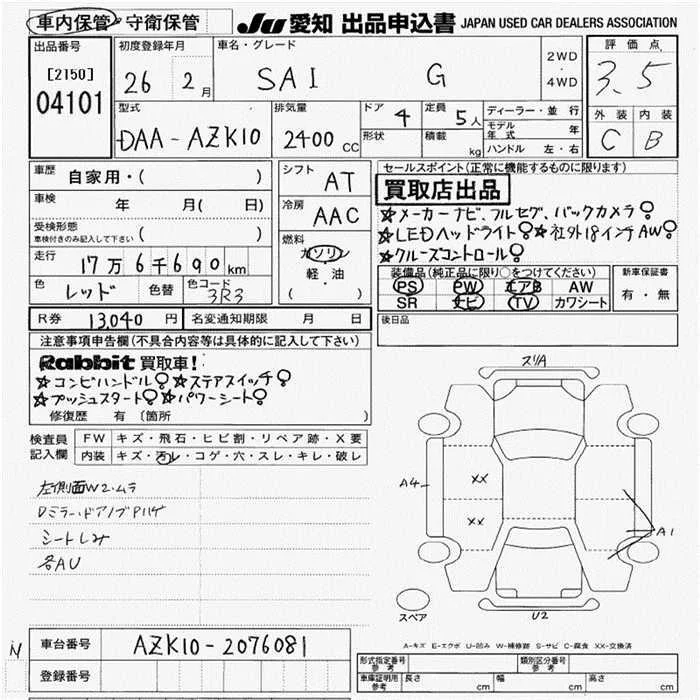 車内保管・守衛保管
JU 愛知 出品申込書 JAPAN USED CAR DEALERS ASSOCIATION
出品番号
[2150]
04101
初度登録年月
26 2月
車名・グレード
SAI G
2WD
・
4WD
評価点
3.5
外装 内装
C B
型式
DAA-AZK10
排気量
2400 CC
ドア 4
形状
定員 5人
積載 kg
ディーラー・並行
モデル年式 年
ハンドル 左・右
車歴 自家用・( )
車検 年 月( 日)
受検形態
車検付きのみ記入して下さい ( )
走行 17万6千690km
色 レッド 色替 色コード 3R3
シフト AT
冷房 AAC
燃料
ガソリン
軽・油
( )
セールスポイント(正常に機能するものに限ります)
買取店出品
☆メーカーナビ、フルセグ、バックカメラ♀
☆LEDヘッドライト♀☆社外18インチAW♀
☆クルーズコントロール♀
装備品(純正品に限り○をつけてください)
PS PW エアB AW
SR ナビ TV カワシート
新車保証書
有・無
R券 13,040円 名変通知期限 月 日
後日品
注意事項申告欄(不具合内容等は具体的に記入して下さい)
Rabbit 買取車!
☆コンビハンドル♀☆ステアスイッチ♀
☆プッシュスタート♀☆パワーシート♀
修復歴 有 〔箇所 〕
検査員記入欄
FW キズ・飛石・ヒビ割・リペア跡・X要
内装 キズ・汚レ・コゲ・穴・スレ・キレ・破レ
左側面W2.ムラ
Dミラー.ドアノブPハゲ
シートしみ
各AU
スリA
A4
XX
XX
A1
スペア
U2
A-キズ E-エクボ U-凹み W-補修跡 S-サビ C-腐食 XX-交換済
車台番号 AZK10-2076081
登録番号
形式指定番号 参考
類別区分番号 参考
車庫証明用 参考 長さ cm 幅 cm 高さ cm